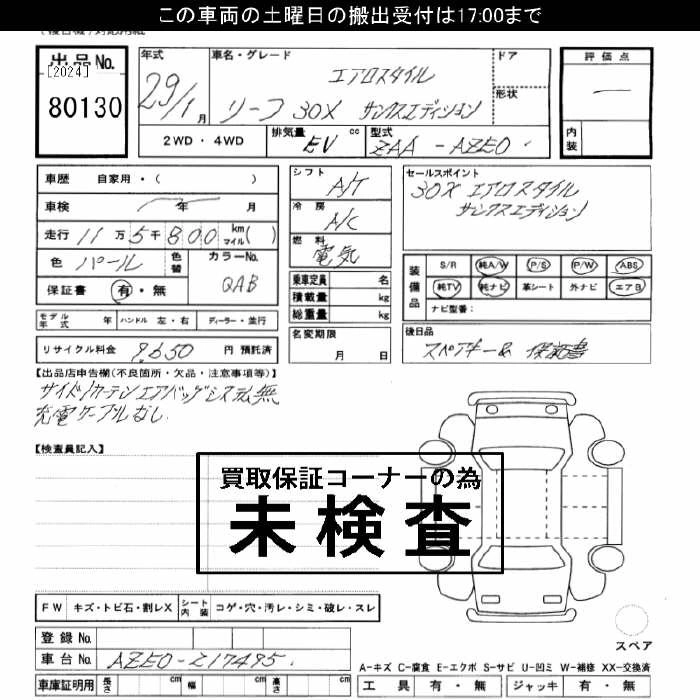 この車両の土曜日の搬出受付は17:00まで
出品No.
[2024]
80130
年式
29/1月
車名・グレード
エアロスタイル
リーフ 30X サンクスエディション
ドア
形状
評価点
—
内装
2WD・4WD
排気量 EV cc
型式 ZAA-AZE0
車歴 自家用・( )
車検 年 月
走行 11万5千800 km マイル( )
色 パール 色替
カラーNo. QAB
保証書 有・無
シフト A/T
冷房 A/C
燃料 電気
乗車定員 名
積載量 kg
総重量 kg
名変期限
月 日
セールスポイント
30X エアロスタイル
サンクスエディション
装備品
S/R 純A/W P/S P/W ABS
純TV 純ナビ 革シート 外ナビ エアB
ナビ型番:
モデル年式 年 ハンドル 左・右 ディーラー・並行
リサイクル料金 9,650 円 預託済
後日品
スペアキー& 保証書
【出品店申告欄(不良箇所・欠品・注意事項等)】
サイド/カーテンエアバッグシステム無
充電ケーブルなし
【検査員記入】
買取保証コーナーの為
未検査
FW キズ・トビ石・割レX シート内装 コゲ・穴・汚レ・シミ・破レ・スレ
登録No.
車台No. AZE0-217495
車庫証明用 長さ cm 幅 cm 高さ cm
スペア
A-キズ C-腐食 E-エクボ S-サビ U-凹ミ W-補修 XX-交換済
工具 有・無 ジャッキ 有・無